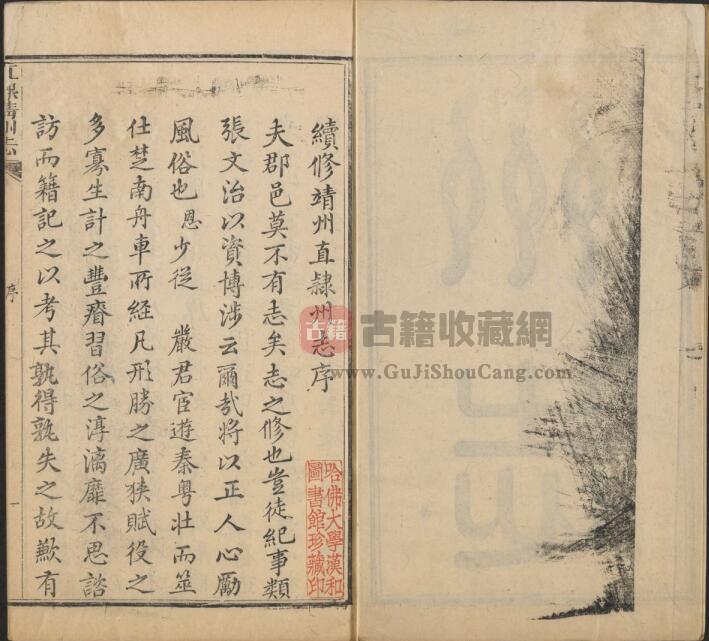 續修靖州直隸州志序
夫郡邑莫不有志矣志之修也豈徒紀事類
張文治以資博涉云爾哉將以正人心勵
風俗也恩少從 嚴君宦遊秦粵壯而筮
仕楚南舟車所經凡形勝之廣狹賦役之
多寡生計之豐瘠習俗之淳漓靡不思諮
訪而籍記之以考其孰得孰失之故歉有
序
一
哈佛大學漢和
圖書館珍藏印
古籍
古籍收藏網
www.GuJiShouCang.com